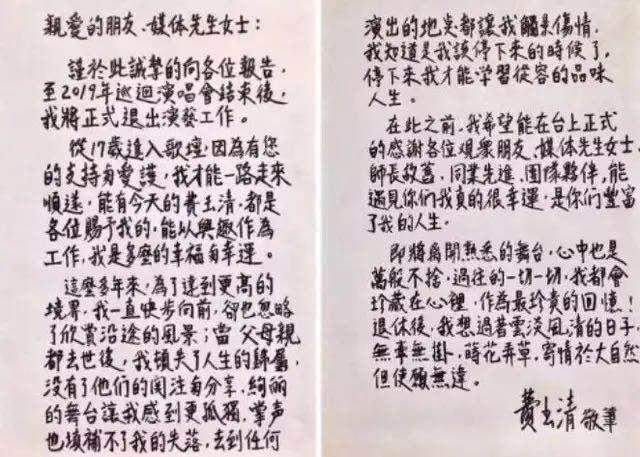 親愛的朋友、媒体先生女士：
謹於此誠摯的向各位報告，
至2019年巡迴演唱會結束後，
我將正式退出演藝工作。
從17歲進入歌壇，因為有您
的支持和愛護，我才能一路走來
順遂，能有今天的費玉清，都是
各位賜予我的，能以興趣作為
工作，我是多麼的幸福和幸運。
這麼多年來，為了達到更高的
境界，我一直快步向前，卻也忽略
了欣賞沿途的風景；當父母親
都去世後，我頓失了人生的歸屬，
沒有了他們的関注和分享，絢麗
的舞台讓我感到更孤獨，掌声
也填補不了我的失落，去到任何
演出的地点都讓我觸景傷情，
我知道是我該停下來的時候了，
停下來我才能学習從容的品味
人生。
在此之前，我希望能在台上正式
的感謝各位观眾朋友、媒体先生女士、
師長故舊，同業先進、團隊夥伴，能
遇見你們我真的很幸運，是你們豐富
了我的人生。
即將離開熟悉的舞台，心中也是
萬般不捨，過往的一切一切，我都會
珍藏在心裡，作為最珍貴的回憶！
退休後，我想過著雲淡風清的日子，
無牽無掛，蒔花弄草，寄情於大自然，
但使願無違。
費玉清 敬筆